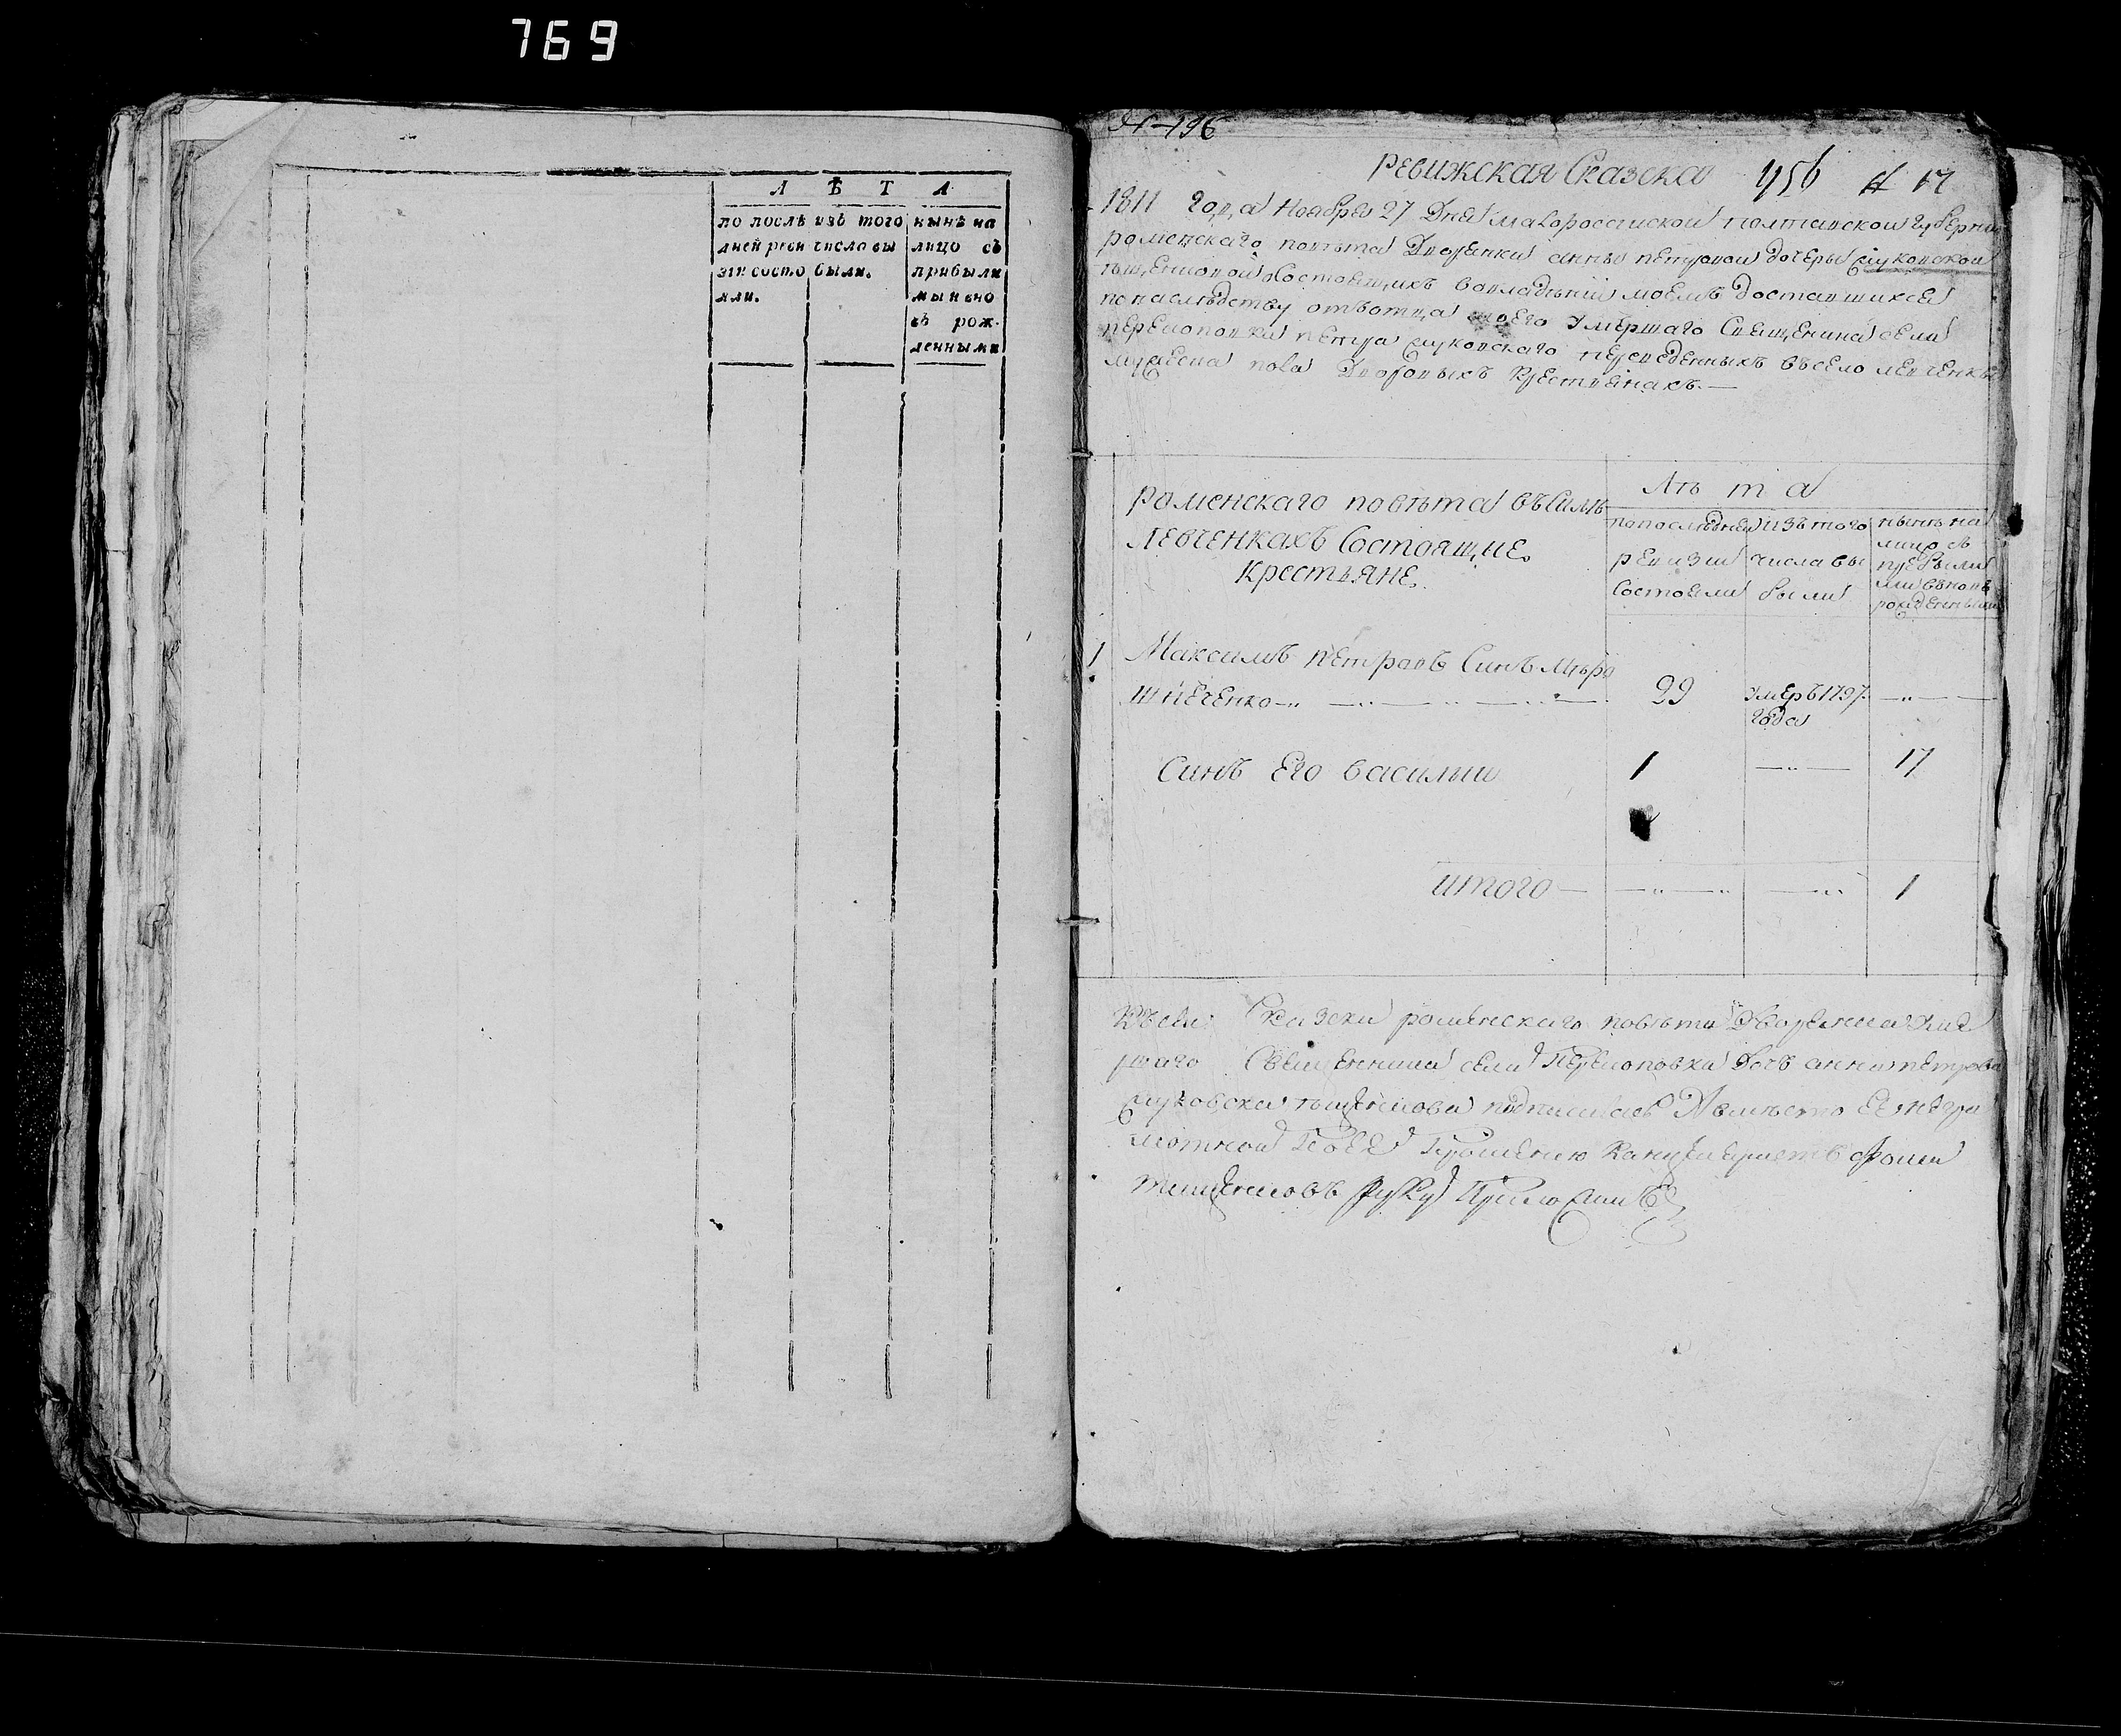 769
Л Ѣ Т А
по послѣ
дней реви
зіи состо
яли.
изъ того
числа вы
были.
нынѣ на
лицо съ
прибыли
ми и вно
въ рож-
денными
№ 196
Ревижская Сказска 456 17
1811 года Ноября 27 Дня малороссийской полтавской губернии
роменскаго повѣта Дворянки анны петровой дочеры
состоящихъ вовладѣнии моемъ доставшихся
понаслѣдству отъотца моего умершаго Священика села
Перекоповки петра переведенныхъ въсело левченки
мужеска пола Дворовыхъ Крестьянахъ.—
Роменскаго повѣта въселѣ
Левченкахъ Состоящие
Крестьяне.
Лѣ т а
попоследней
ревизии
состояли
изъ того
числа вы
были
нынѣ на
лицо съ
прибыли
ми вновь
рожденными
1 Максимъ петровъ Синъ Мѣро
шниченко 29 умеръ 1797
года
Синъ Его василии 1 17
итого 1
Късей Сказски роменскаго повѣта Дворянина уме
ршаго Священника села Перекоповки Дочь анна петрова
подписалась Авместо Ея негра
мотной Поея Прошению Канцеляристъ Фома
Тищенковъ Руку Приложилъ